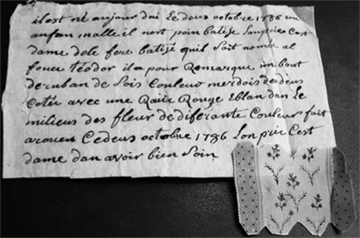 ilest né aujour dui Le deus octobre 1786 un
anfan malle il nest poin batisé Lon prie Cest
dame dele fere batizé quil Soit nomé al
fonce téodor il a pour Remarque un bout
de ruban de Sois Couleur merdois des deus
Cotés avec une Raiie Rouge Eblan dan Le
milieus des fleur de diferante Couleur fait
a rouen Ce deus octobre 1786 Lon prie Cest
dame dan avoir bien Soin